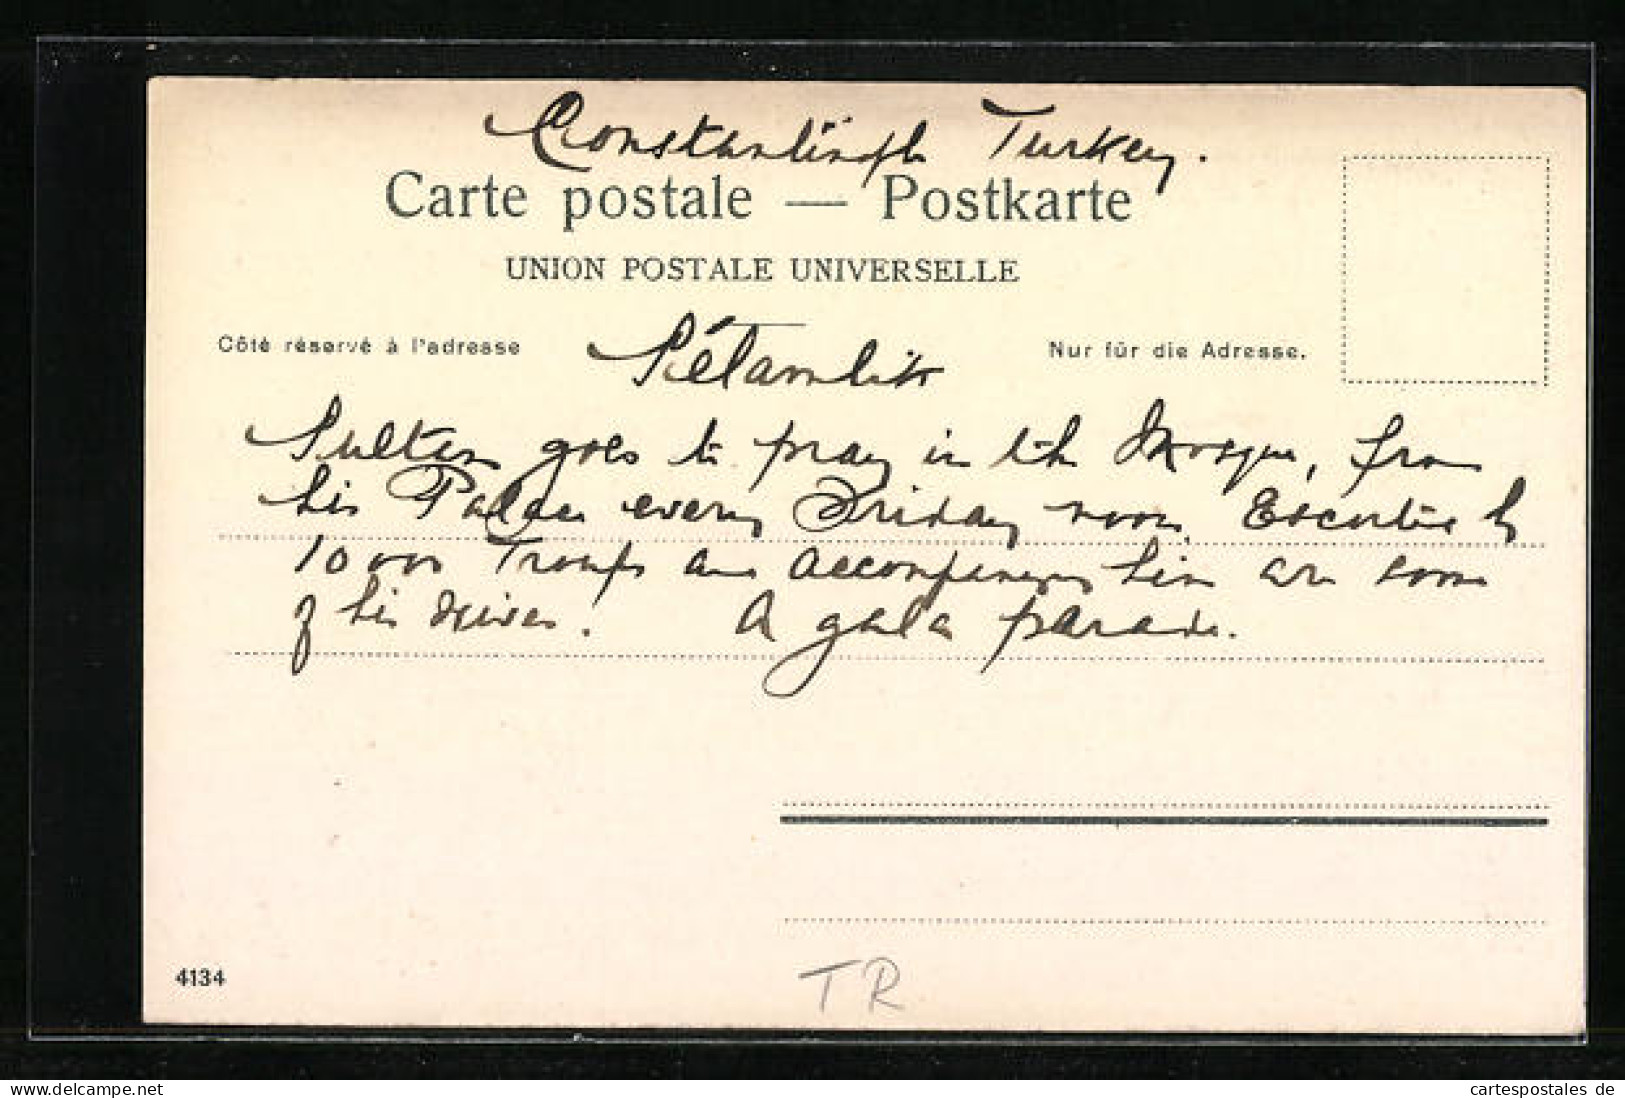 Constantinople Turkey.
Carte postale — Postkarte
UNION POSTALE UNIVERSELLE
Côté réservé à l'adresse
Sélamlik
Nur für die Adresse.
Sultan goes to pray in the Mosque, from
his Palace every Friday noon, Escorted by
10000 Troops and accompanying him are some
of his wives. A gala parade.
4134
TR
cartespostales de
www.delcampe.net